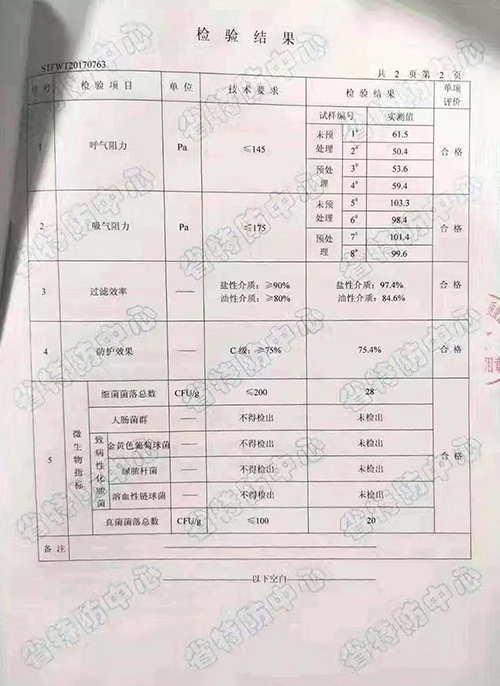 检验结果
STFWT20170763
共 2 页 第 2 页
序号 检验项目 单位 技术要求 检验结果 单项评价
试样编号 实测值
1 呼气阻力 Pa ≤145 合格
未预处理 1# 61.5
2# 50.4
预处理 3# 53.6
4# 59.4
2 吸气阻力 Pa ≤175 合格
未预处理 5# 103.3
6# 98.4
预处理 7# 101.4
8# 99.6
3 过滤效率 —— 盐性介质：≥90% 盐性介质：97.4% 合格
油性介质：≥80% 油性介质：84.6%
4 防护效果 —— C 级：≥75% 75.4% 合格
5 微生物指标 合格
细菌菌落总数 CFU/g ≤200 28
大肠菌群 —— 不得检出 未检出
致病性化脓菌
金黄色葡萄球菌 —— 不得检出 未检出
绿脓杆菌 —— 不得检出 未检出
溶血性链球菌 —— 不得检出 未检出
真菌菌落总数 CFU/g ≤100 20
备注
以下空白
省特防中心
省特防中心
省特防中心
省特防中心
省特防中心
省特防中心
省特防中心
省特防中心